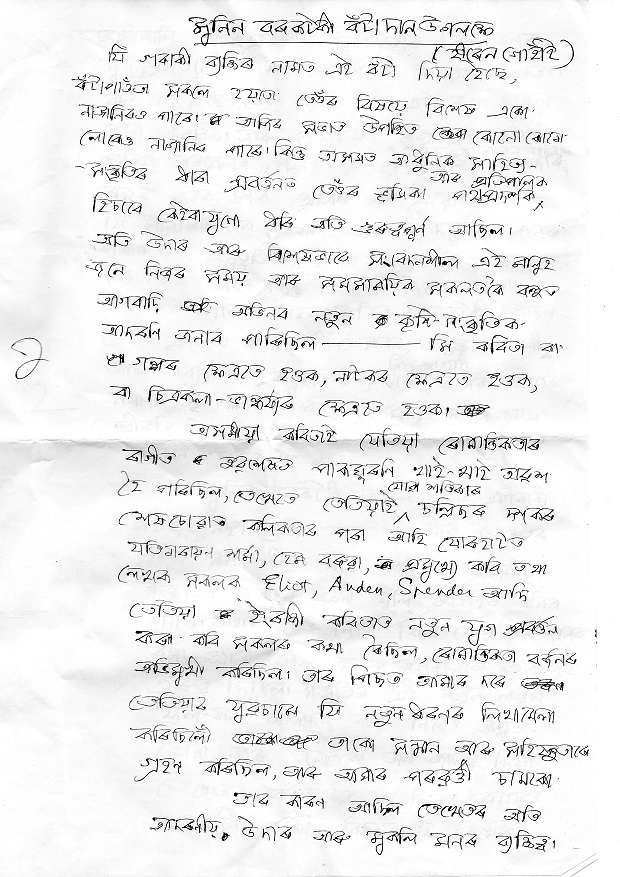 মুনিন বৰকটকী বঁটা প্ৰদান উপলক্ষে
(হীৰেন গোহাঁই)
যি গৰাকী ব্যক্তিৰ নামত এই বঁটা দিয়া হৈছে,
বঁটা পাওঁতা সকলে হয়তো তেওঁৰ বিষয়ে বিশেষ একো
নাজানিবও পাৰে। আজিৰ সভাত উপস্থিত কোনো কোনো
লোকেও নাজানিব পাৰে। কিন্তু অসমত আধুনিক সাহিত্য-
সংস্কৃতিৰ ধাৰা প্ৰবৰ্তনত তেওঁৰ ভূমিকা পথপ্ৰদৰ্শক আৰু প্ৰতিপালক
হিচাবে কেইবাযুগো ধৰি অতি গুৰুত্বপূৰ্ণ আছিল।
অতি উদাৰ আৰু বিশেষভাৱে সংবেদনশীল এই মানুহ
জনে নিজৰ সময় আৰু সমসাময়িক সকলতকৈ বহুত
আগবাঢ়ি অভিনৱ নতুন কৃষ্টি-সংস্কৃতিক
আদৰণি জনাব পাৰিছিল — সি কবিতা বা
গল্পৰ ক্ষেত্ৰতে হওক, নাটকৰ ক্ষেত্ৰতে হওক,
বা চিত্ৰকলা-ভাস্কৰ্যৰ ক্ষেত্ৰতে হওক।
2
অসমীয়া কবিতাই যেতিয়া ৰোমান্টিকতাৰ
পাকঘূৰণি খাই-খাই
হৈ পৰিছিল, তেখেতে তেতিয়াই যোৱা শতিকাৰ চল্লিছৰ দশকৰ
শেষছোৱাত কলিকতাৰ পৰা আহি যোৰহাটত
যতিনাৰায়ণ শৰ্মা, হেম বৰুৱা, প্ৰমুখ্যে কবি তথা
লেখক সকলক Eliot, Auden, Spender আদি
তেতিয়া ইংৰাজী কবিতাত নতুন যুগ প্ৰৱৰ্তন
কৰা কবি সকলৰ কথা কৈছিল, ৰোমান্টিকতা বৰ্জনৰ
অভিমুখী কৰিছিল। তাৰ পিছত আমাৰ দৰে
তেতিয়াৰ যুৱচামে যি নতুন ধৰণৰ লিখামেলা
কৰিছিলোঁ তাকো সমান আৰু সহিষ্ণুতাৰে
গ্ৰহণ কৰিছিল, আৰু আমাৰ পৰৱৰ্ত্তী চামকো।
তাৰ কাৰণ আছিল তেখেতৰ অতি
আদৰণীয়, উদাৰ আৰু মুকলি মনৰ ব্যক্তিত্ব।